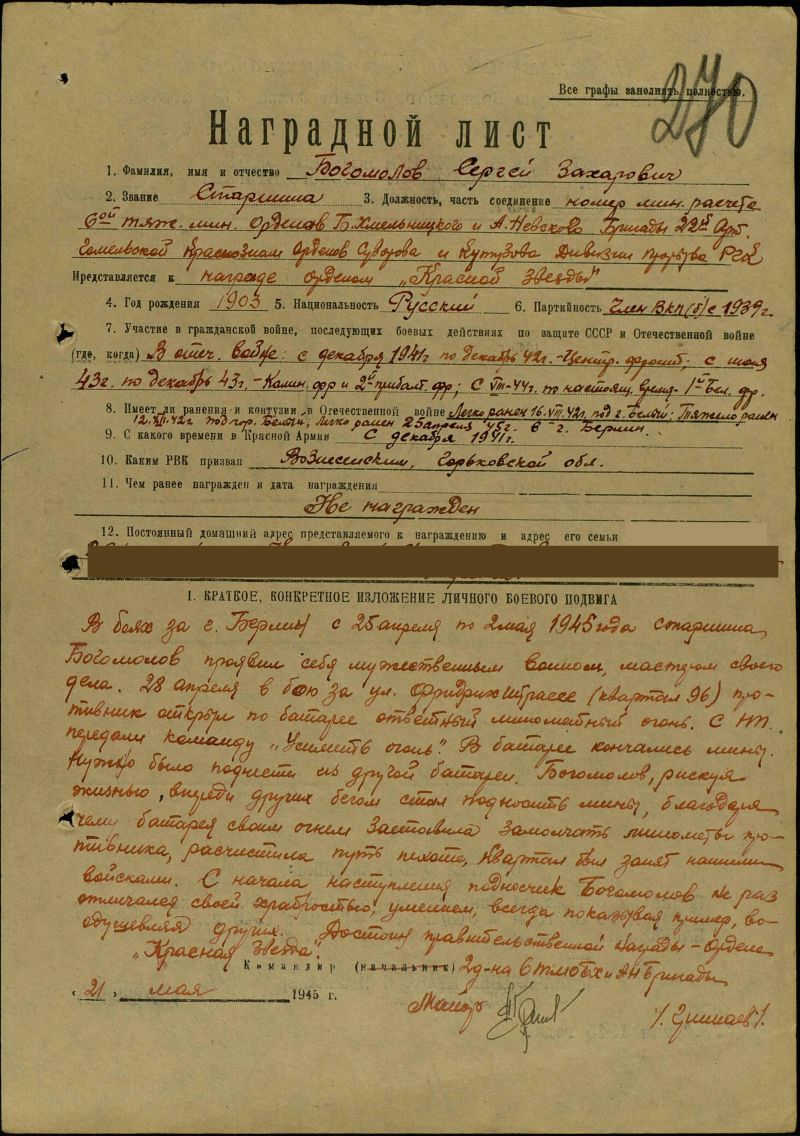 Все графы заполнять полностью.
270
Наградной лист
1. Фамилия, имя и отчество Богомолов Сергей Захарович
2. Звание Старшина 3. Должность, часть соединение номер мин. расчета
6ой тяж. мин. орденов Б.Хмельницкого и А.Невского Бригады 22й Арт.
Гомельской Краснознам Орденов Суворова и Кутузова Дивизии прорыва РГК
Представляется к награде орденом „Красной Звезды"
4. Год рождения 1903 5. Национальность Русский 6. Партийность Член ВКП(б) с 1939г.
7. Участие в гражданской войне, последующих боевых действиях по защите СССР и Отечественной войне
(где, когда) В отеч. войне: с декабря 1941г по декабрь 42г. - Центр. фронт; с июля
43г. по декабрь 43г. - Калин. фр и 2й прибалт. фр; С VIII-44г. по настоящ. время - 1й Бел. фр.
8. Имеет ли ранения и контузии в Отечественной войне Легко ранен 16.VIII.42г. под г. Белый; Тяжело ранен
12.XII.42г. под гор. Белый; Легко ранен 25 апреля 45г. в г. Берлин.
9. С какого времени в Красной Армии С декабря 1941г.
10. Каким РВК призван Вознесенским, Горьковской обл.
11. Чем ранее награжден и дата награждения
Не награжден
12. Постоянный домашний адрес представляемого к награждению и адрес его семьи
I. КРАТКОЕ, КОНКРЕТНОЕ ИЗЛОЖЕНИЕ ЛИЧНОГО БОЕВОГО ПОДВИГА
В боях за г. Берлин с 25 апреля по 2 мая 1945 года старшина
Богомолов проявил себя мужественным воином, мастером своего
дела. 28 апреля в бою за ул. Фридрихштрассе (квартал 96) про-
тивник открыл по батарее ответный минометный огонь. С НП
передали команду „Усилить огонь". В батарее кончались мины.
Нужно было поднести из другой батареи. Богомолов, рискуя
жизнью, впереди других бегом стал подносить мины, благодаря
чему батарея своим огнем заставила замолчать минометы про-
тивника, расчистила путь пехоте, квартал был занят нашими
войсками. С начала наступления подносчик Богомолов не раз
отличался своей храбростью, умением, всегда показывая пример, во-
одушевляя других. Достоин правительственной награды - ордена
„Красная Звезда".
Командир (начальник) 2 д-на 6 тмбБХ и АН Бригады
„21" мая 1945 г.
Майор